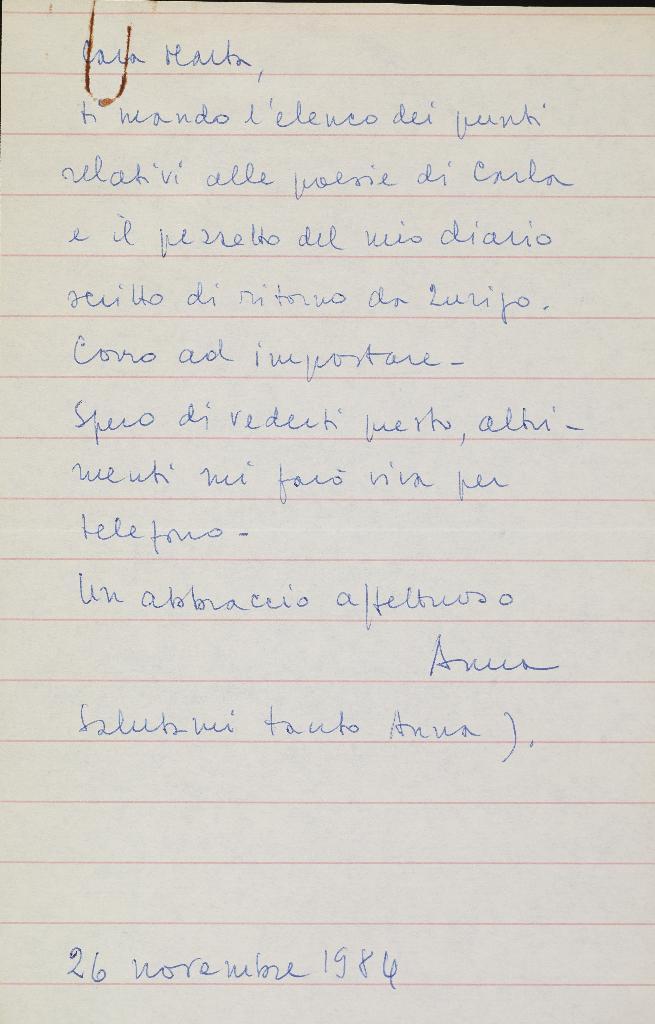 Cara Marta,
ti mando l'elenco dei punti
relativi alle poesie di Carla
e il pezzetto del mio diario
scritto di ritorno da Zurigo.
Corro ad impostare -
Spero di vederti presto, altri-
menti mi farò viva per
telefono -
Un abbraccio affettuoso
Anna
Salutami tanto Anna J.
26 novembre 1984